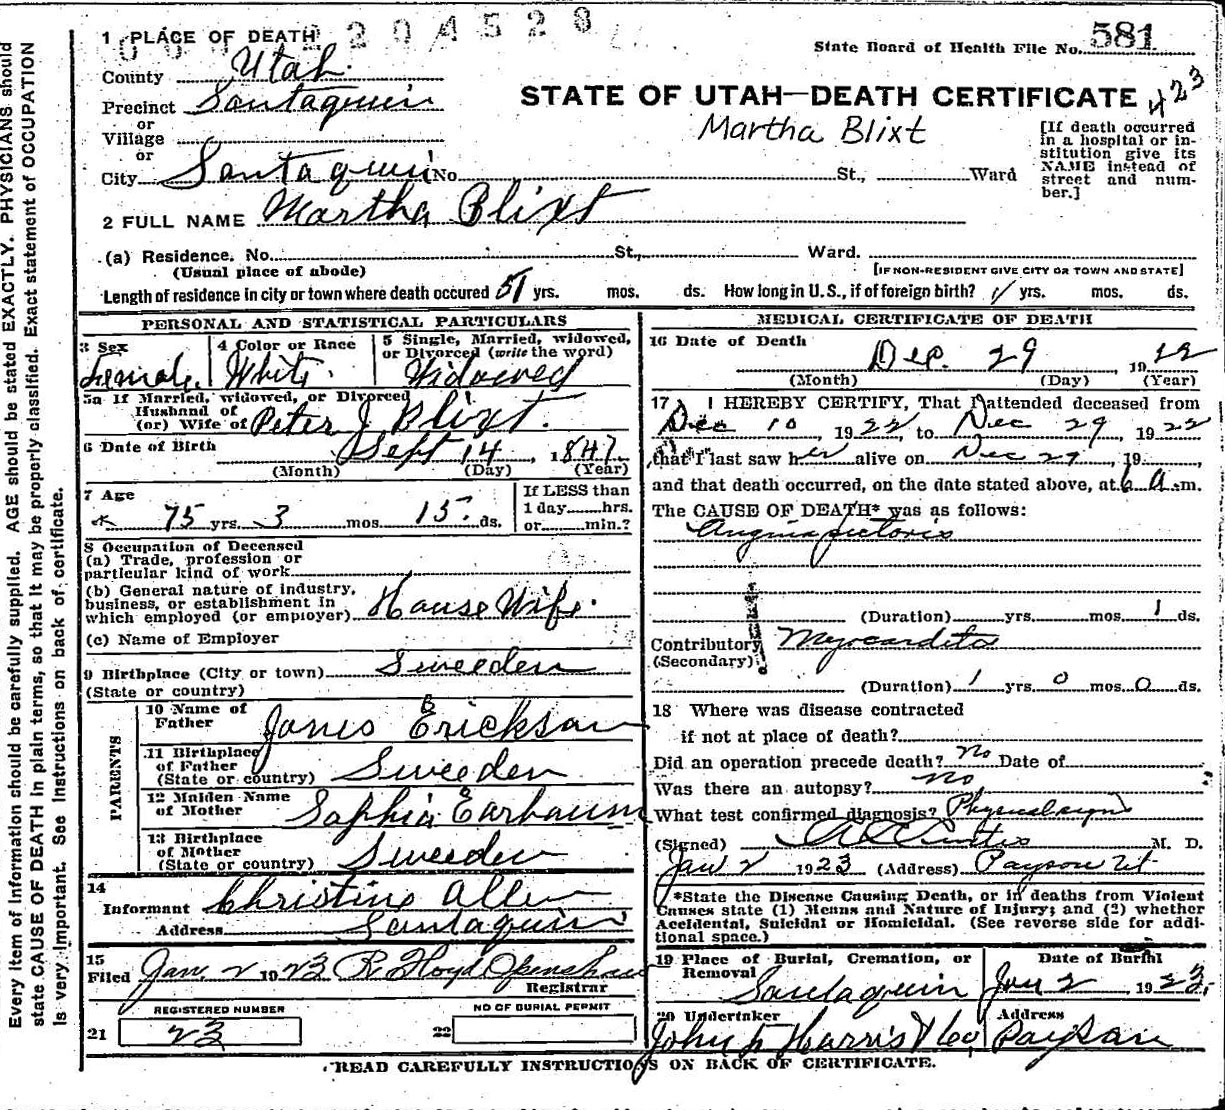 0 0 0 2 2 0 4 5 2 8
1 PLACE OF DEATH
State Board of Health File No. 581
County Utah
Precinct Santaquin
STATE OF UTAH—DEATH CERTIFICATE 423
or
Village
Martha Blixt
or
City Santaquin No. St., Ward
[If death occurred
in a hospital or in-
stitution give its
NAME instead of
street and num-
ber.]
2 FULL NAME Martha Blixt
(a) Residence. No. St., Ward.
(Usual place of abode)
[IF NON-RESIDENT GIVE CITY OR TOWN AND STATE]
Length of residence in city or town where death occured 51 yrs. mos. ds. How long in U.S., if of foreign birth? yrs. mos. ds.
PERSONAL AND STATISTICAL PARTICULARS
3 Sex
Female
4 Color or Race
White
5 Single, Married, widowed,
or Divorced (write the word)
Widowed
5a If Married, widowed, or Divorced
Husband of
(or) Wife of Peter J Blixt.
6 Date of Birth
Sept 14, 1847
(Month) (Day) (Year)
7 Age
75 yrs. 3 mos. 15 ds.
If LESS than
1 day hrs.
or min.?
8 Occupation of Deceased
(a) Trade, profession or
particular kind of work
(b) General nature of industry,
business, or establishment in
which employed (or employer) House Wife.
(c) Name of Employer
9 Birthplace (City or town) Sweeden
(State or country)
PARENTS
10 Name of
Father Jones B Erickson
11 Birthplace
of Father
(State or country) Sweeden
12 Maiden Name
of Mother Sophia Earbaum
13 Birthplace
of Mother
(State or country) Sweeden
14
Informant Christine Allen
Address Santaquin
15
Filed Jan. 2 1923 R Floyd Openshaw
Registrar
REGISTERED NUMBER
21 23
NO OF BURIAL PERMIT
22
MEDICAL CERTIFICATE OF DEATH
16 Date of Death
Dec. 29 1922
(Month) (Day) (Year)
17 I HEREBY CERTIFY, That I attended deceased from
Dec 10, 1922, to Dec 29, 1922
that I last saw her alive on Dec 29, 19
and that death occurred, on the date stated above, at 6 a.m.
The CAUSE OF DEATH* was as follows:
Angina pectoris
(Duration) yrs. mos. 1 ds.
Contributory Myocarditis
(Secondary)
(Duration) 1 yrs. 0 mos. 0 ds.
18 Where was disease contracted
if not at place of death?
Did an operation precede death? no Date of
Was there an autopsy? no
What test confirmed diagnosis? Physical signs
(Signed) A L Curtis M. D.
Jan 2 1923 (Address) Payson Ut
*State the Disease Causing Death, or in deaths from Violent
Causes state (1) Means and Nature of Injury; and (2) whether
Accidental, Suicidal or Homicidal. (See reverse side for addi-
tional space.)
19 Place of Burial, Cremation, or
Removal
Santaquin
Date of Burial
Jan 2, 1923.
20 Undertaker
John F Harris & Co
Address
Payson
READ CAREFULLY INSTRUCTIONS ON BACK OF CERTIFICATE.
Every item of information should be carefully supplied. AGE should be stated EXACTLY. PHYSICIANS should
state CAUSE OF DEATH in plain terms, so that it may be properly classified. Exact statement of OCCUPATION
is very important. See instructions on back of certificate.